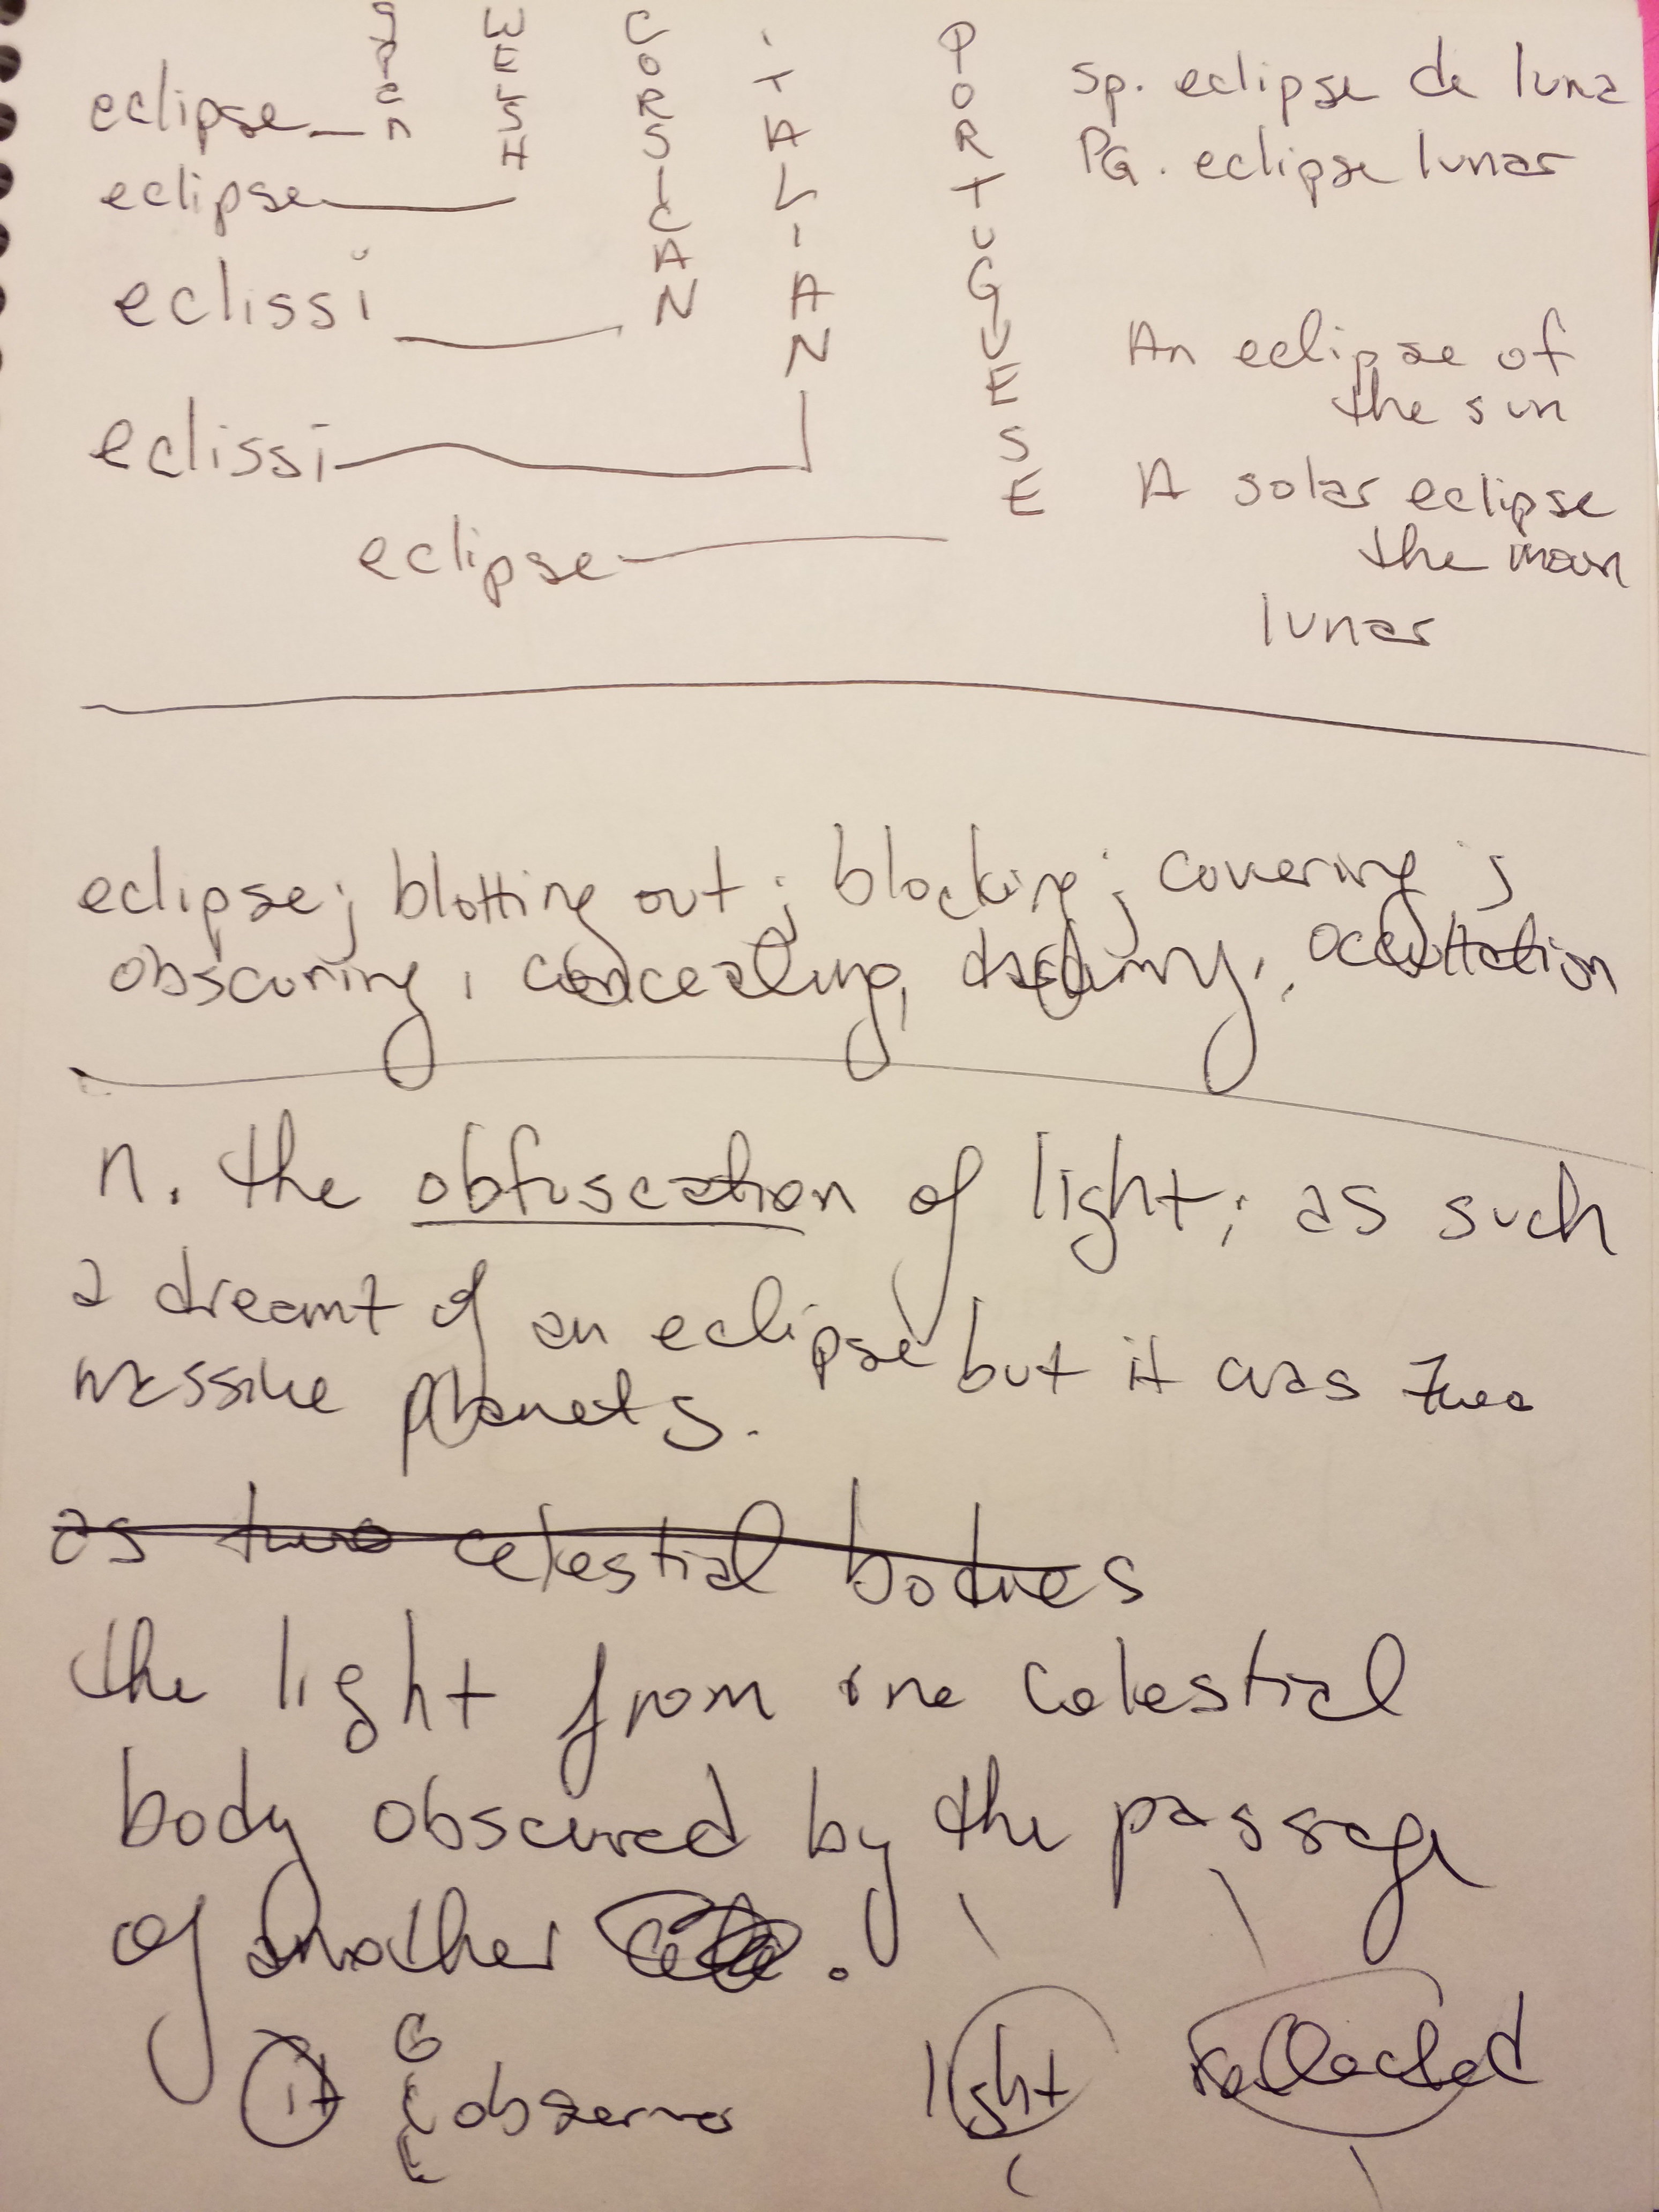 span
WELSH
CORSICAN
iTALIAN
PORTUGUESE
eclipse
eclipse
eclissi
eclissi
eclipse
sp. eclipse de luna
PG. eclipse lunar
An eclipse of
the sun
A solar eclipse
the moon
lunar
eclipse; blotting out; blocking; covering;
obscuring, concealing, occultation
n. the obfuscation of light; as such
a dreamt of an eclipse but it was two
massive planets.
as two celestial bodies
the light from one celestial
body obscured by the passage
of another .
it observer
light reflected